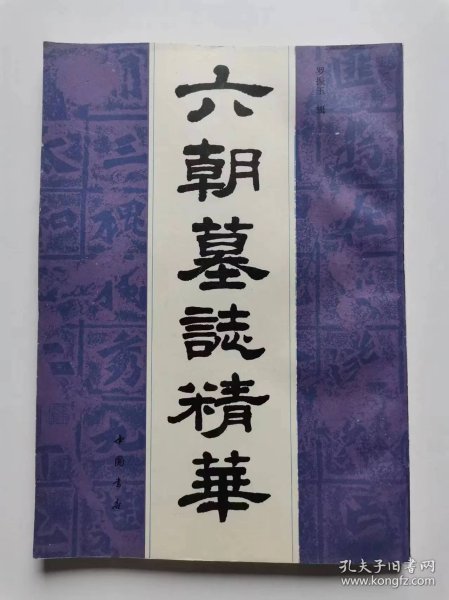 六朝墓誌精華
罗振玉 辑
中国书店
孔夫子旧书网
www.kongfz.com